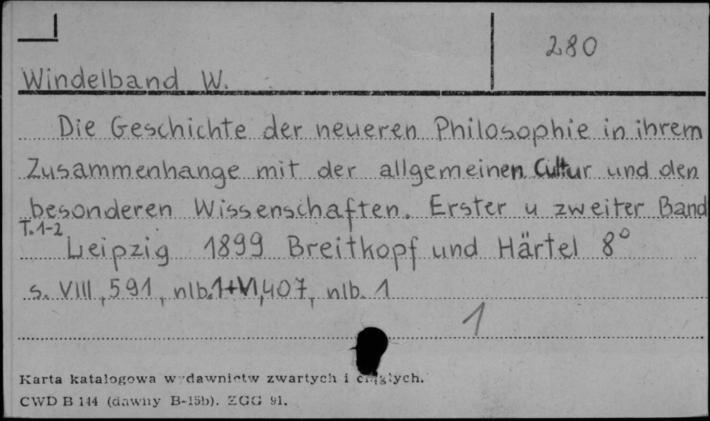 280
Windelband W.
Die Geschichte der neueren Philosophie in ihrem
Zusammenhange mit der allgemeinen Cultur und den
besonderen Wissenschaften. Erster u zweiter Band
T. 1-2
Leipzig 1899 Breitkopf und Härtel 8°
s. VIII, 591, nlb. 1+VI, 407, nlb. 1
1
Karta katalogowa wydawnictw zwartych i ciągłych.
CWD B 144 (dawny B-15b). ZGG 91.